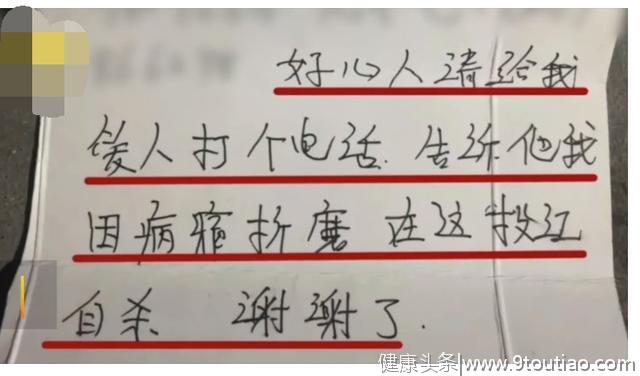 好心人请给我
爱人打个电话.告诉他我
因病痛折磨 在这投江
自杀 谢谢了.
健康头条|www.9toutiao.com